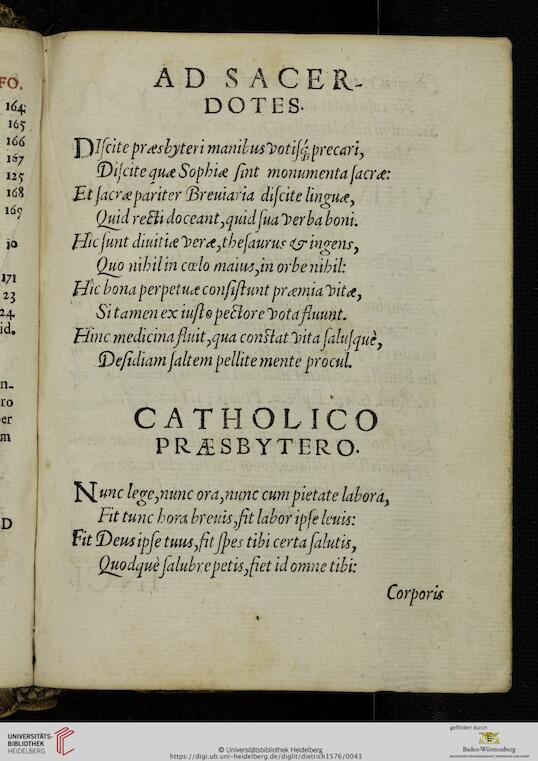 FO.
164
165
166
167
125
168
169
10
171
23
24.
id.
n-
ro
er
m
D
AD SACER-
DOTES.
DIſcite præsbyteri manibus votiſq́; precari,
Diſcite quæ Sophiæ ſint monumenta ſacræ:
Et ſacræ pariter Breuiaria diſcite linguæ,
Quid recti doceant, quid ſua verba boni.
Hic ſunt diuitiæ veræ, theſaurus & ingens,
Quo nihil in cœlo maius, in orbe nihil:
Hic bona perpetuæ conſiſtunt præmia vitæ,
Si tamen ex iuſto pectore vota fluunt.
Hinc medicina fluit, qua conſtat vita ſaluſquè,
Deſidiam ſaltem pellite mente procul.
CATHOLICO
PRÆSBYTERO.
Nunc lege, nunc ora, nunc cum pietate labora,
Fit tunc hora breuis, fit labor ipſe leuis:
Fit Deus ipſe tuus, fit ſpes tibi certa ſalutis,
Quodquè ſalubre petis, fiet id omne tibi:
Corporis
UNIVERSITÄTS-
BIBLIOTHEK
HEIDELBERG
© Universitätsbibliothek Heidelberg
https://digi.ub.uni-heidelberg.de/diglit/dietrich1576/0043
gefördert durch
Baden-Württemberg